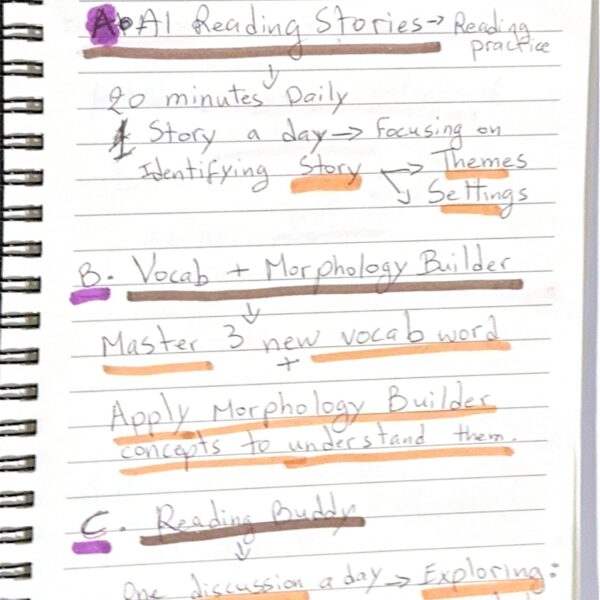 A. AI Reading Stories → Reading practice
↓
20 minutes Daily
1 Story a day → Focusing on
Identifying Story → Themes
↘ Settings
B. Vocab + Morphology Builder
↓
Master 3 new vocab word
+
Apply Morphology Builder
concepts to understand them.
C. Reading Buddy
↓
One discussion a day → Exploring: